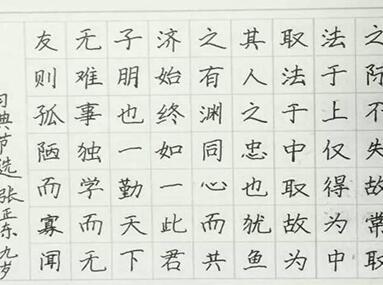 之际不失故常取
法于上仅得为中
取法于中取故为
其人之忠也犹鱼
之有渊同心而共
济始终如一此君
子朋也一勤天下
无难事独学而无
友则孤陋而寡闻
典节选 张正东 九岁